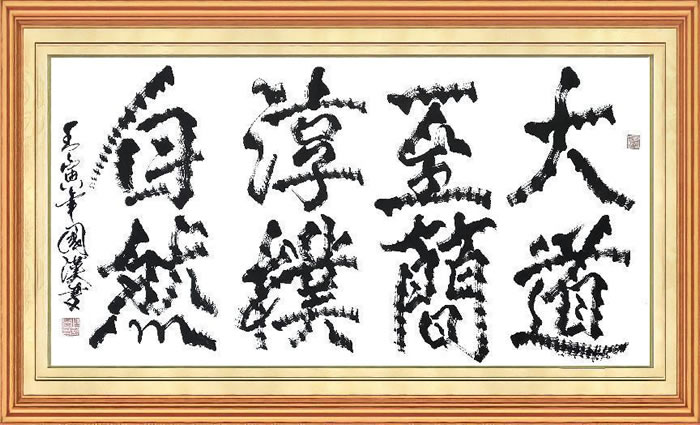 大道
至簡
淳樸
自然
壬寅年國漢書